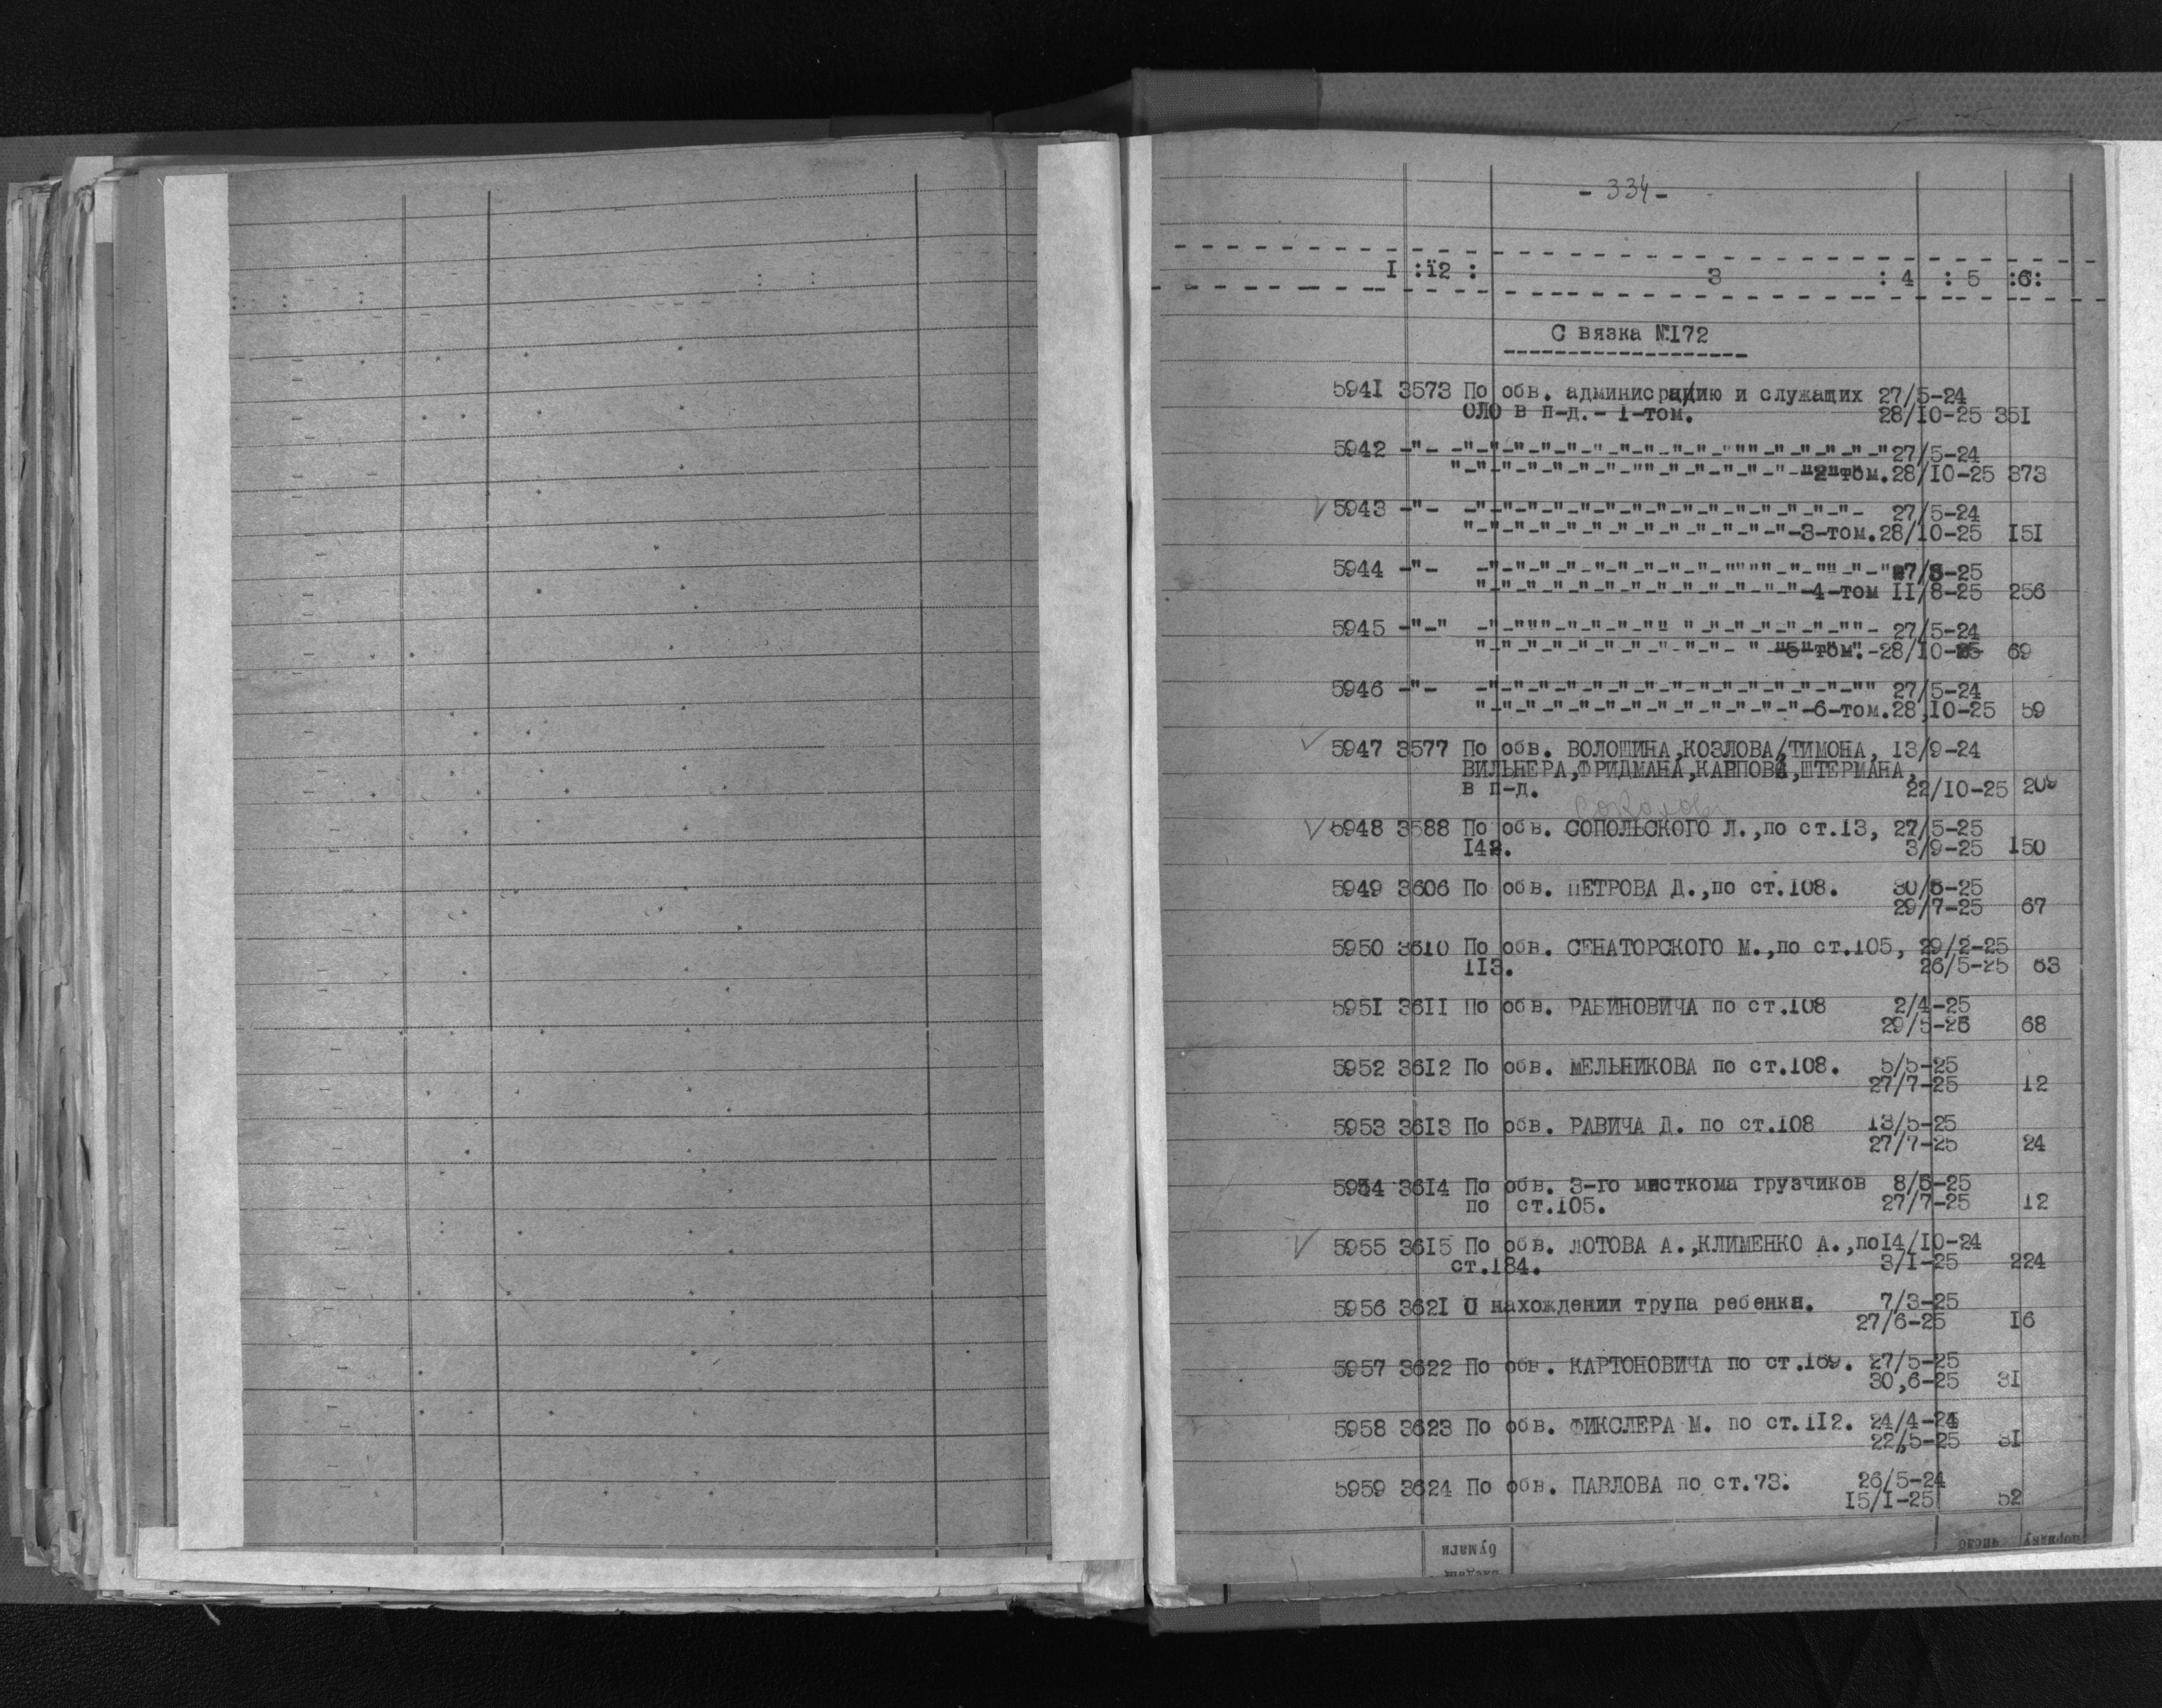 - 334 -
I : 2 : 3 : 4 : 5 : 6:
С вязка №172
5941 3573 По обв. админисрацию и служащих 27/5-24
ОЛО в п-д.- 1-том. 28/10-25 351
5942 -"- -"-"-"-"-"-"-"-"-"-"-"""-"-"-"-"-" 27/5-24
"-"-"-"-"-"-"-""-"-"-"-"-"-2-том. 28/10-25 373
5943 -"- -"-"-"-"-"-"-"-"-"-"-"-"-"-"-"- 27/5-24
"-"-"-"-"-"-"-"-"-"-"-"-"-3-том. 28/10-25 151
5944 -"- -"-"-"-"-"-"-"-"-"-""""-"-""-"-" 27/5-25
"-"-"-"-"-"-"-"-"-"-"-"-"-4-том 11/8-25 256
5945 -"-" -"-"""-"-"-"-"" "-"-"-"-"-"-""- 27/5-24
"-"-"-"-"-"-"-"-"-"- " -5-том.-28/10-25 69
5946 -"- -"-"-"-"-"-"-"-"-"-"-"-"-"-"-"" 27/5-24
"-"-"-"-"-"-"-"-"-"-"-"-"-6-том. 28,10-25 59
5947 3577 По обв. ВОЛОШИНА,КОЗЛОВА,ТИМОНА, 13/9-24
ВИЛЬНЕРА,ФРИДМАНА,КАРПОВА,ШТЕРМАНА,
в п-д. 22/10-25
5948 3588 По обв. СОПОЛЬСКОГО Л.,по ст.13, 27/5-25
142. 3/9-25 150
5949 3606 По обв. ПЕТРОВА Д.,по ст.108. 30/5-25
29/7-25 67
5950 3610 По обв. СЕНАТОРСКОГО М.,по ст.105, 29/2-25
113. 26/5-25 63
5951 3611 По обв. РАБИНОВИЧА по ст.108 2/4-25
29/5-25 68
5952 3612 По обв. МЕЛЬНИКОВА по ст.108. 5/5-25
27/7-25 12
5953 3613 По обв. РАВИЧА Д. по ст.108 13/5-25
27/7-25 24
5954 3614 По обв. 3-го месткома грузчиков 8/5-25
по ст.105. 27/7-25 12
5955 3615 По обв. ЛОТОВА А.,КЛИМЕНКО А.,по 14/10-24
ст.184. 3/1-25 224
5956 3621 О нахождении трупа ребенка. 7/3-25
27/6-25 16
5957 3622 По обв. КАРТОНОВИЧА по ст.169. 27/5-25
30,6-25 31
5958 3623 По обв. ФИКСЛЕРА М. по ст.112. 24/4-24
22,5-25 31
5959 3624 По обв. ПАВЛОВА по ст.73. 26/5-24
15/1-25 52
бумаги число порядку